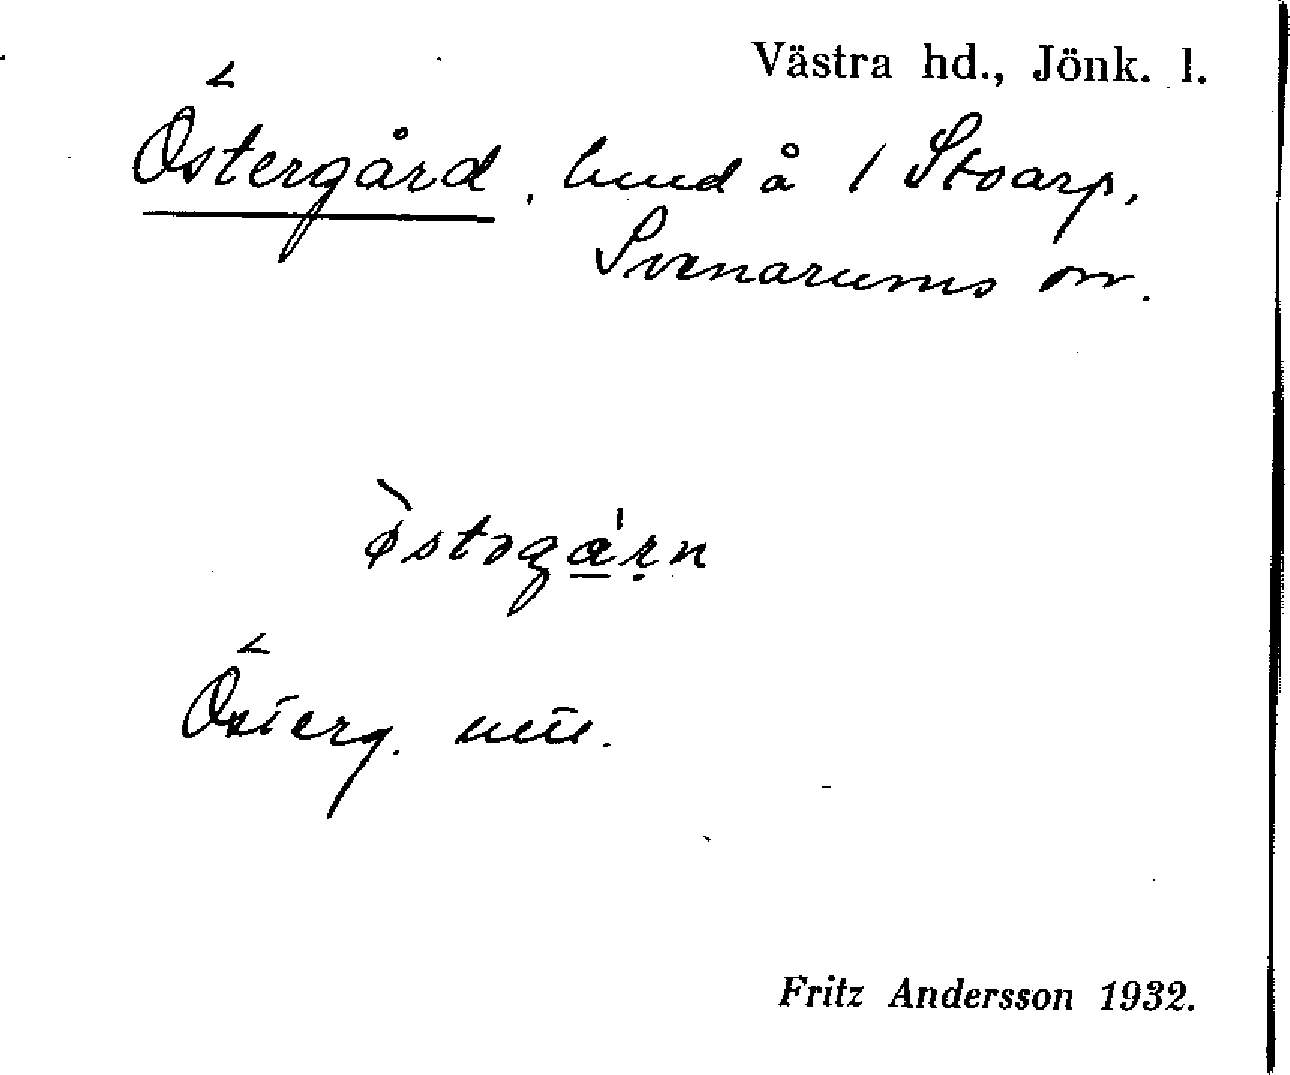 Västra hd., Jönk. l.
Östergård, hmd å 1 Stoarp,
Svenarums sn.
Österg.
Fritz Andersson 1932.